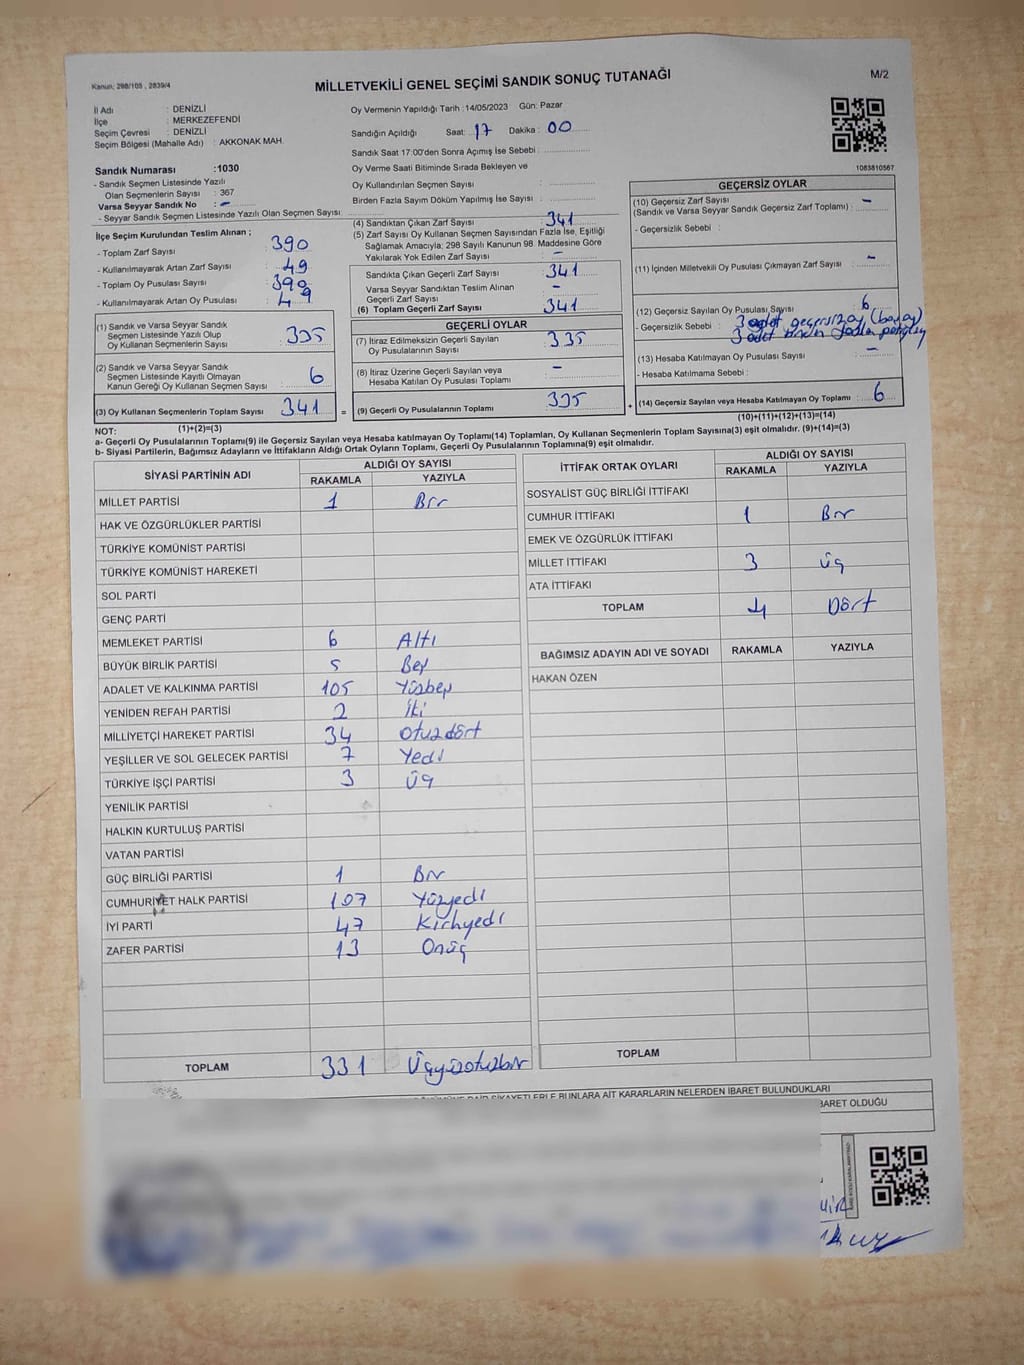 Kanun; 298/105 , 2839/4
MİLLETVEKİLİ GENEL SEÇİMİ SANDIK SONUÇ TUTANAĞI
M/2
İl Adı : DENİZLİ
İlçe : MERKEZEFENDİ
Seçim Çevresi : DENİZLİ
Seçim Bölgesi (Mahalle Adı) : AKKONAK MAH.
Sandık Numarası :1030
- Sandık Seçmen Listesinde Yazılı
Olan Seçmenlerin Sayısı : 367
Varsa Seyyar Sandık No : -
- Seyyar Sandık Seçmen Listesinde Yazılı Olan Seçmen Sayısı:
Oy Vermenin Yapıldığı Tarih :14/05/2023 Gün: Pazar
Sandığın Açıldığı Saat: 17 Dakika : 00
Sandık Saat 17:00'den Sonra Açımış İse Sebebi :
Oy Verme Saati Bitiminde Sırada Bekleyen ve
Oy Kullandırılan Seçmen Sayısı :
Birden Fazla Sayım Döküm Yapılmış İse Sayısı :
1083810567
İlçe Seçim Kurulundan Teslim Alınan ;
- Toplam Zarf Sayısı : 390
- Kullanılmayarak Artan Zarf Sayısı : 49
- Toplam Oy Pusulası Sayısı : 390
- Kullanılmayarak Artan Oy Pusulası : 49
(1) Sandık ve Varsa Seyyar Sandık
Seçmen Listesinde Yazılı Olup
Oy Kullanan Seçmenlerin Sayısı : 335
(2) Sandık ve Varsa Seyyar Sandık
Seçmen Listesinde Kayıtlı Olmayan
Kanun Gereği Oy Kullanan Seçmen Sayısı : 6
(3) Oy Kullanan Seçmenlerin Toplam Sayısı : 341
(1)+(2)=(3)
(4) Sandıktan Çıkan Zarf Sayısı : 341
(5) Zarf Sayısı Oy Kullanan Seçmen Sayısından Fazla İse, Eşitliği
Sağlamak Amacıyla; 298 Sayılı Kanunun 98. Maddesine Göre
Yakılarak Yok Edilen Zarf Sayısı : -
Sandıkta Çıkan Geçerli Zarf Sayısı : 341
Varsa Seyyar Sandıktan Teslim Alınan
Geçerli Zarf Sayısı : -
(6) Toplam Geçerli Zarf Sayısı : 341
GEÇERLİ OYLAR
(7) İtiraz Edilmeksizin Geçerli Sayılan
Oy Pusulalarının Sayısı : 335
(8) İtiraz Üzerine Geçerli Sayılan veya
Hesaba Katılan Oy Pusulası Toplamı : -
= (9) Geçerli Oy Pusulalarının Toplamı : 335
GEÇERSİZ OYLAR
(10) Geçersiz Zarf Sayısı : -
(Sandık ve Varsa Seyyar Sandık Geçersiz Zarf Toplamı)
- Geçersizlik Sebebi :
(11) İçinden Milletvekili Oy Pusulası Çıkmayan Zarf Sayısı : -
(12) Geçersiz Sayılan Oy Pusulası Sayısı : 6
- Geçersizlik Sebebi : 3 adet geçersiz oy
3 adet
(13) Hesaba Katılmayan Oy Pusulası Sayısı : -
- Hesaba Katılmama Sebebi :
+ (14) Geçersiz Sayılan veya Hesaba Katılmayan Oy Toplamı : 6
(10)+(11)+(12)+(13)=(14)
NOT:
a- Geçerli Oy Pusulalarının Toplamı(9) ile Geçersiz Sayılan veya Hesaba katılmayan Oy Toplamı(14) Toplamları, Oy Kullanan Seçmenlerin Toplam Sayısına(3) eşit olmalıdır. (9)+(14)=(3)
b- Siyasi Partilerin, Bağımsız Adayların ve İttifakların Aldığı Ortak Oyların Toplamı, Geçerli Oy Pusulalarının Toplamına(9) eşit olmalıdır.
SİYASİ PARTİNİN ADI ALDIĞI OY SAYISI
RAKAMLA YAZIYLA
MİLLET PARTİSİ 1 Bir
HAK VE ÖZGÜRLÜKLER PARTİSİ
TÜRKİYE KOMÜNİST PARTİSİ
TÜRKİYE KOMÜNİST HAREKETİ
SOL PARTİ
GENÇ PARTİ
MEMLEKET PARTİSİ 6 Altı
BÜYÜK BİRLİK PARTİSİ 5 Beş
ADALET VE KALKINMA PARTİSİ 105 Yüzbeş
YENİDEN REFAH PARTİSİ 2 İki
MİLLİYETÇİ HAREKET PARTİSİ 34 Otuzdört
YEŞİLLER VE SOL GELECEK PARTİSİ 7 Yedi
TÜRKİYE İŞÇİ PARTİSİ 3 Üç
YENİLİK PARTİSİ
HALKIN KURTULUŞ PARTİSİ
VATAN PARTİSİ
GÜÇ BİRLİĞİ PARTİSİ 1 Bir
CUMHURİYET HALK PARTİSİ 107 Yüzyedi
İYİ PARTİ 47 Kırkyedi
ZAFER PARTİSİ 13 Onüç
TOPLAM 331 Üçyüzotuzbir
İTTİFAK ORTAK OYLARI ALDIĞI OY SAYISI
RAKAMLA YAZIYLA
SOSYALİST GÜÇ BİRLİĞİ İTTİFAKI
CUMHUR İTTİFAKI 1 Bir
EMEK VE ÖZGÜRLÜK İTTİFAKI
MİLLET İTTİFAKI 3 Üç
ATA İTTİFAKI
TOPLAM 4 Dört
BAĞIMSIZ ADAYIN ADI VE SOYADI RAKAMLA YAZIYLA
HAKAN ÖZEN
TOPLAM
ŞİKAYETLERLE BUNLARA AİT KARARLARIN NELERDEN İBARET BULUNDUKLARI
BARET OLDUĞU